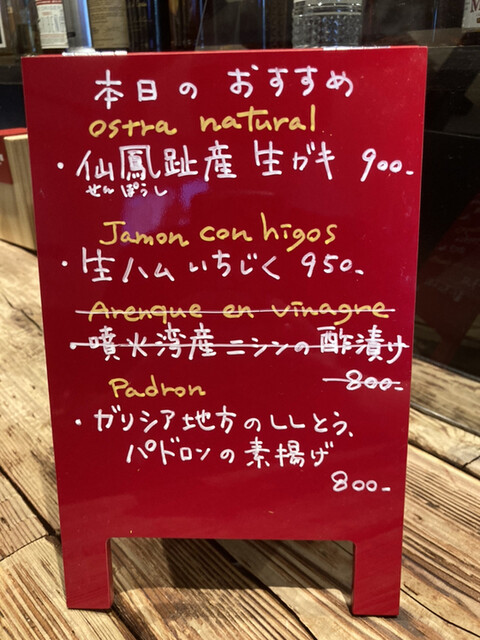 本日の おすすめ
ostra natural
・仙鳳趾産 生ガキ 900-
せんぽうし
Jamon con higos
・生ハム いちじく 950-
Arenque en vinagre
・噴火湾産ニシンの酢漬け
800-
Padron
・ガリシア地方のししとう、
パドロンの素揚げ
800-